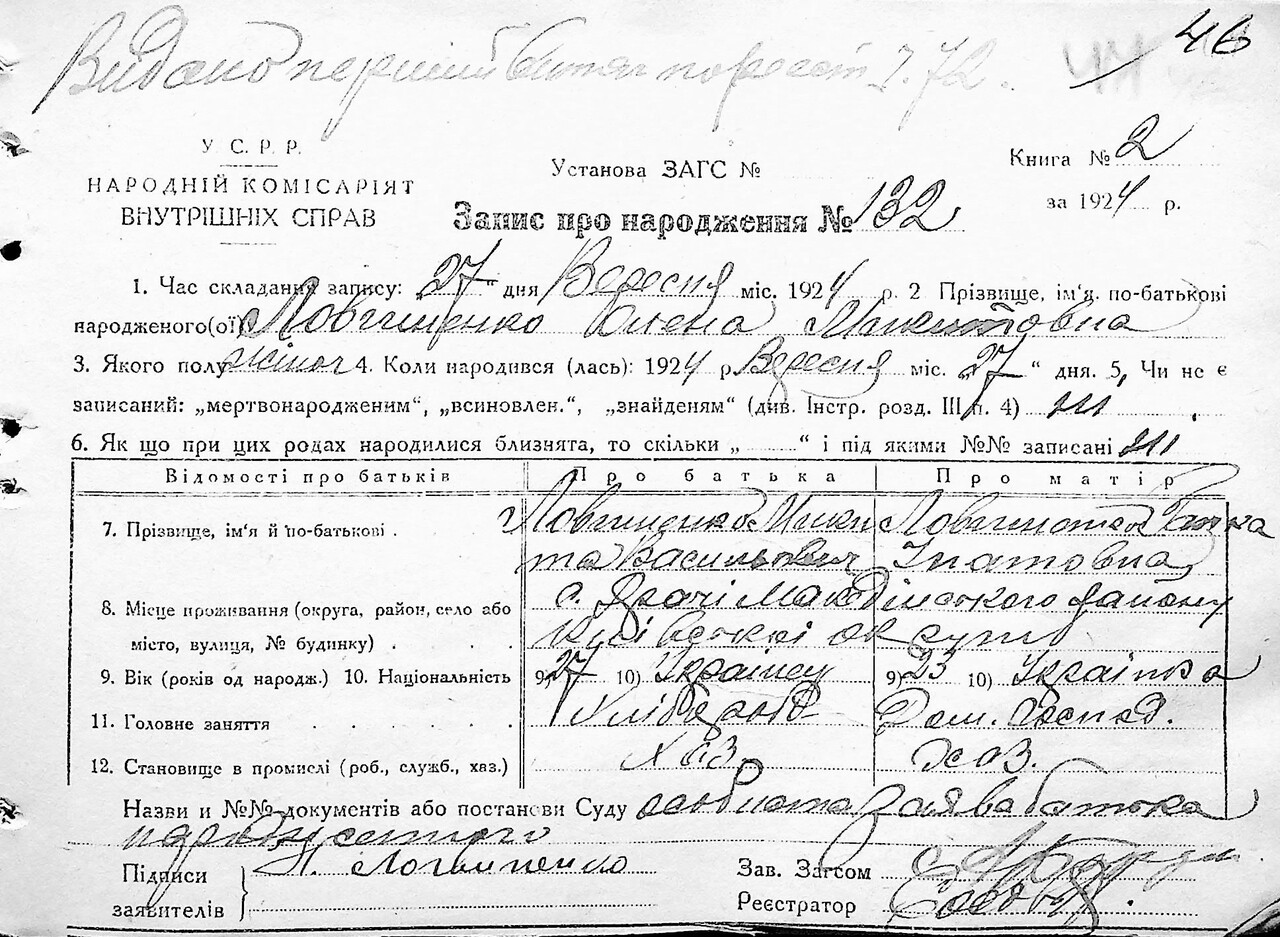 Видано перший витяг по реєст 2.72.
46
У.С.Р.Р.
НАРОДНІЙ КОМІСАРІЯТ
ВНУТРІШНІХ СПРАВ
Установа ЗАГС №
Книга № 2
за 1924 р.
Запис про народження № 132
1. Час складання запису: „27“ дня Вересня міс. 1924 р. 2 Прізвище, ім'я. по-батькові
народженого(ої) Ловгиненко Олена Микитовна
3. Якого полу жіноч 4. Коли народився (лась): 1924 р. Вересня міс. „27“ дня. 5, Чи не є
записаний: „мертвонародженим“, „всиновлен.“, „знайденям“ (див. Інстр. розд. III п. 4)
6. Як що при цих родах народилися близнята, то скільки „ “ і під якими №№ записані
Відомості про батьків Про батька Про матір
7. Прізвище, ім'я й по-батькові . Ловгиненко Мики Ганна
та Васильович Ігнатовна
8. Місце проживання (округа, район, село або с. району
місто, вулиця, № будинку) . . . . Київської округи
9. Вік (років од народж.) 10. Національність 9) 27 10) Українец 9) 23 10) Українка
11. Головне заняття . . . . . Хлібороб Дом. господ.
12. Становище в промислі (роб., служб., хаз.) Хаз. Хаз.
Назви и №№ документів або постанови Суду особиста заява батька
Підписи
заявителів
Н. Логвиненко
Зав. Загсом
Реєстратор